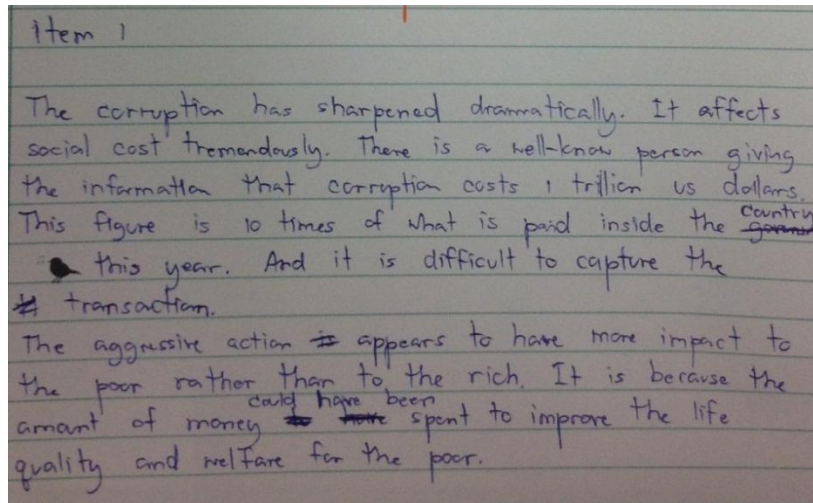 item 1
The corruption has sharpened dramatically. It affects
social cost tremendously. There is a well-know person giving
the information that corruption costs 1 trillion us dollars.
This figure is 10 times of what is paid inside the country
this year. And it is difficult to capture the
transaction.
The aggressive action appears to have more impact to
the poor rather than to the rich. It is because the
amount of money could have been spent to improve the life
quality and welfare for the poor.